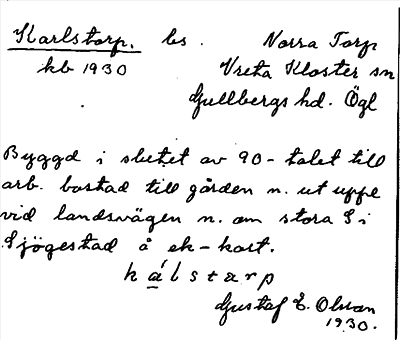 Karlstorp. bs. Norra Torp
kb 1930 Vreta Kloster sn
Gullbergs hd. Ögl
Byggd i slutet av 90-talet till
arb. bostad till gården n. ut uppe
vid landsvägen n. om stora S i
Sjögestad å ek-kart.
kálstarp
Gustaf E. Olsson
1930.